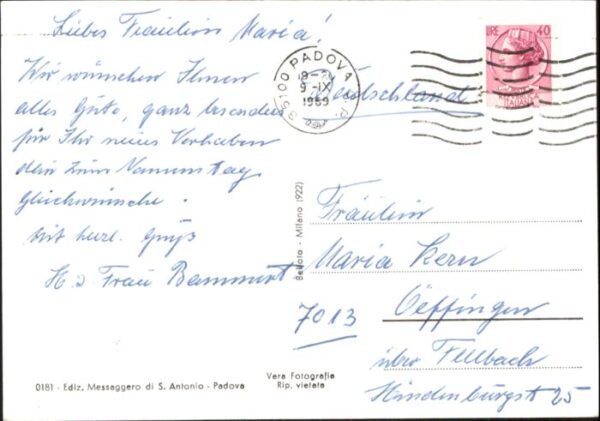 Liebes Fräulein Maria!
Wir wünschen Ihnen
alles Gute, ganz besonders
für Ihr neues Vorhaben
dein zum Namenstag
Glückwünsche.
Mit herzl. Gruß
H. u. Frau Bammert
0181 - Ediz. Messaggero di S. Antonio - Padova
Vera Fotografia
Rip. vietata
Milano (922)
35100 PADOVA
9-IX
1969
LIRE 40
ITALIANA
Deutschland
Fräulein
Maria Kern
7013 Oeffingen
über Fellbach
Hindenburgst 25